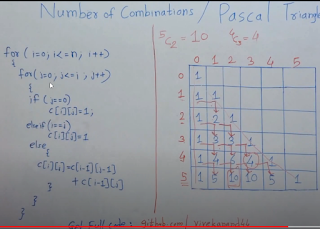 Number of Combinations / Pascal Triangle
5C2 = 10 4C3 = 4
for (i=0; i<=n; i++)
{
for (j=0; j<=i; j++)
{
if (j==0)
c[i][j]=1;
else if (i==j)
c[i][j]=1
else
{
c[i][j]=c[i-1][j-1]
+ c[i-1][j]
}
}
}
0 1 2 3 4 5
0 1
1 1 1
2 1 2 1
3 1 3 3 1
4 1 4 6 4 1
5 1 5 10 10 5 1
Full code: github.com/